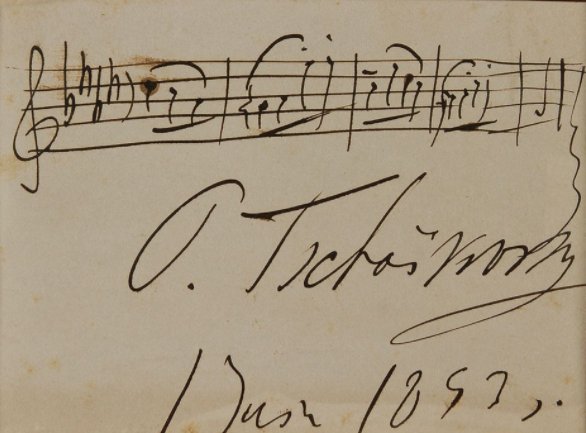 P. Tschaïkovsky
1 Juin 1893.